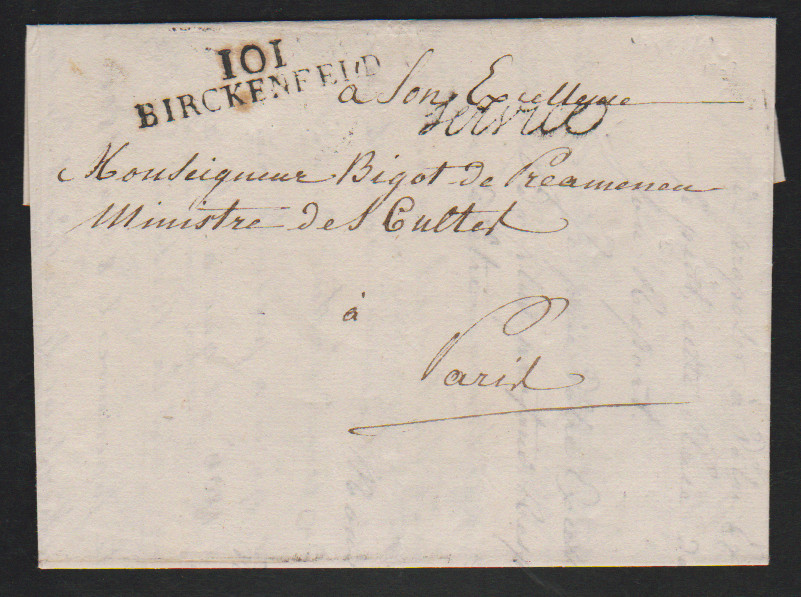 101
BIRCKENFELD
a Son Excellence
service
Monseigneur Bigot de Preameneu
Ministre des Cultes
à
Paris